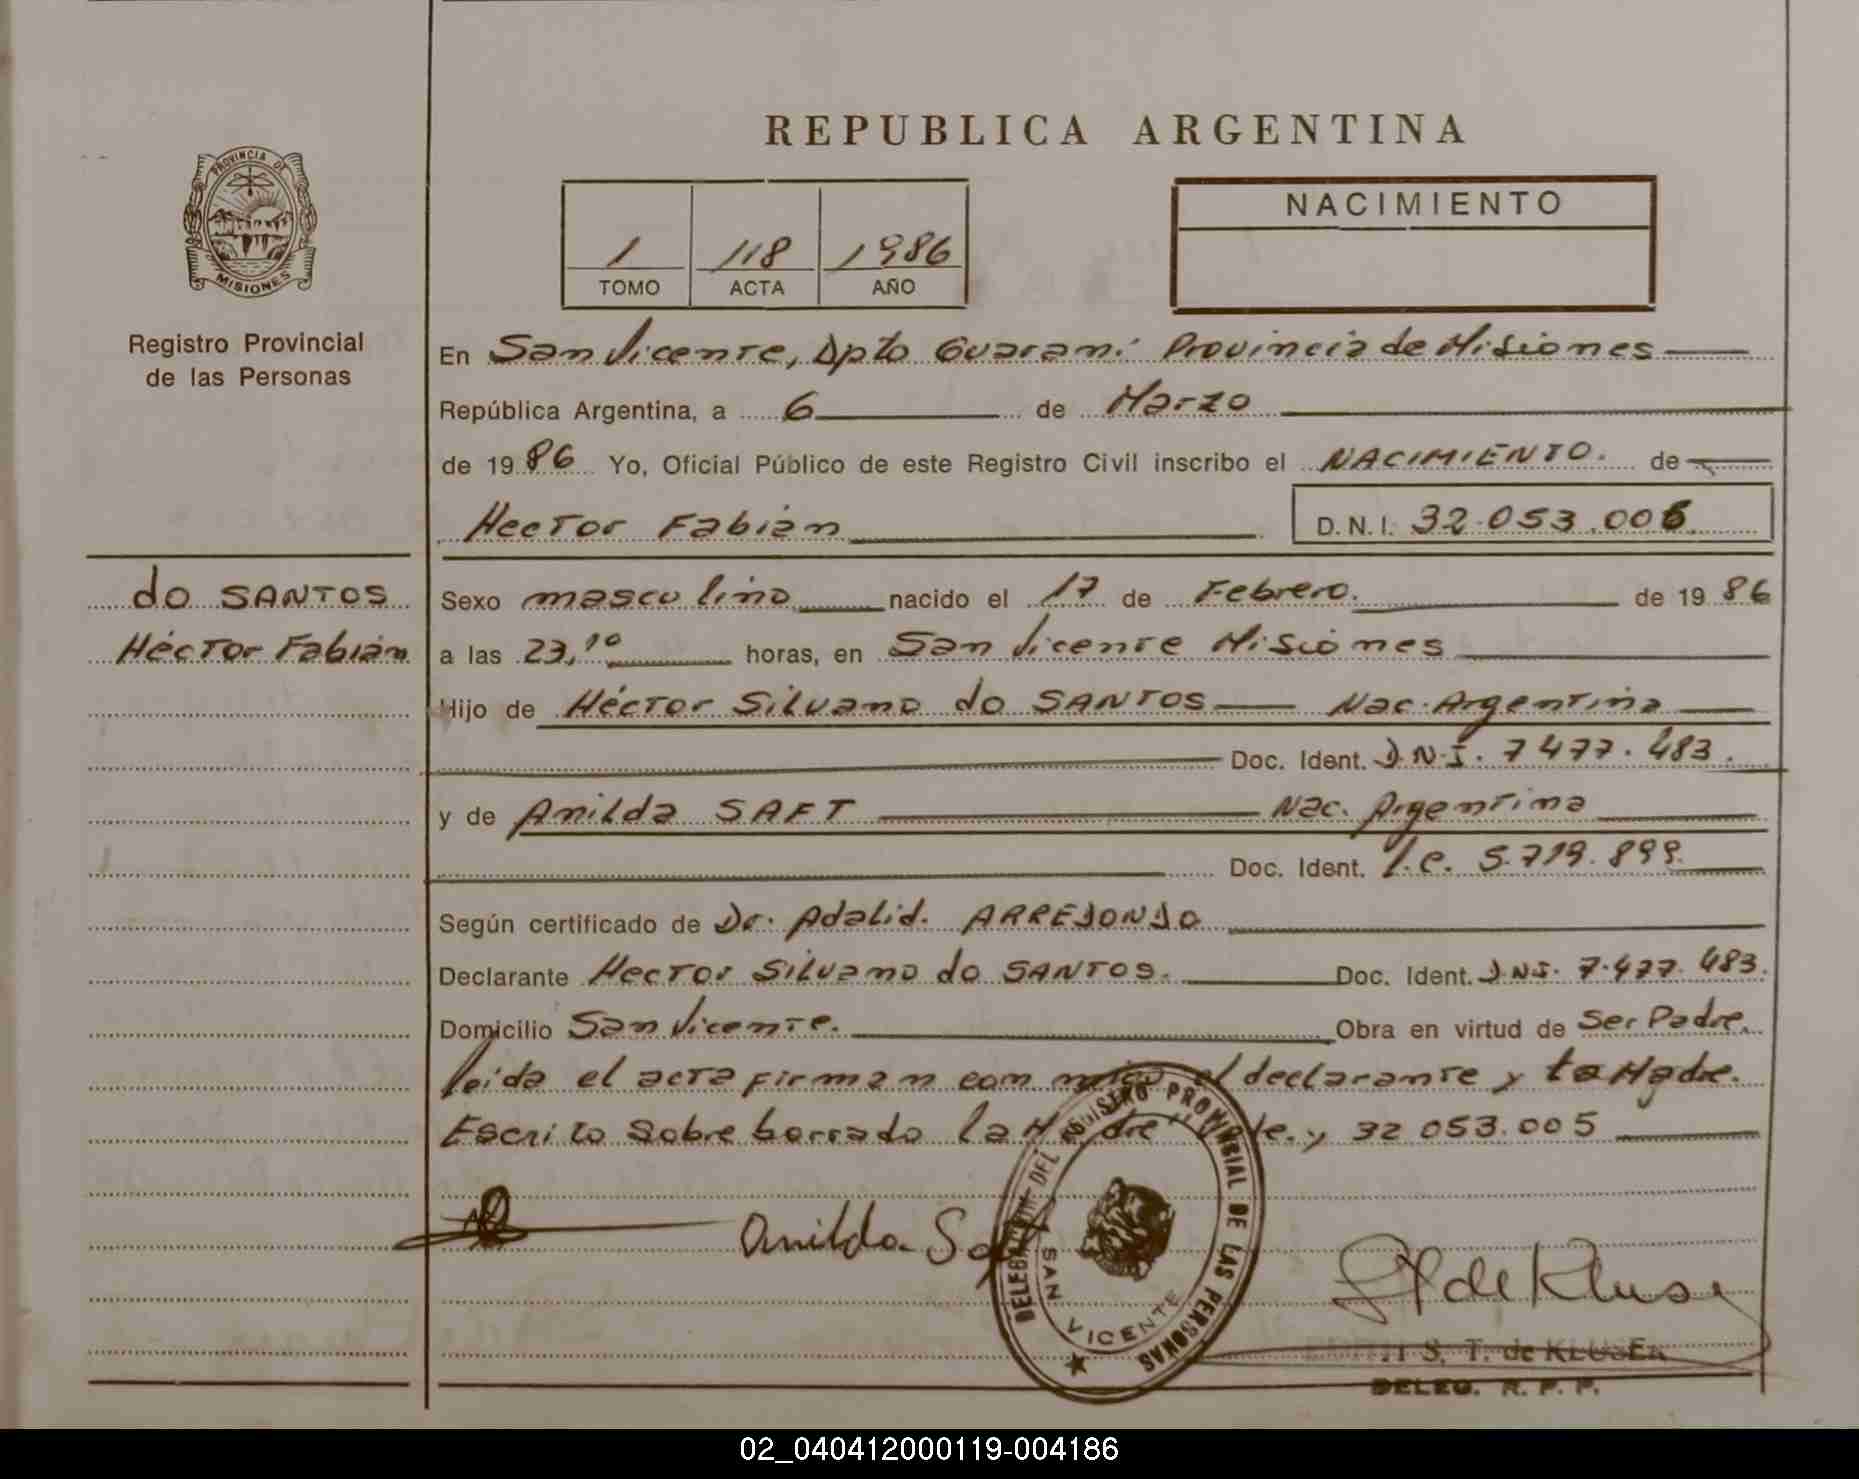 REPUBLICA ARGENTINA
PROVINCIA DE
MISIONES
Registro Provincial
de las Personas
1 118 1986
TOMO ACTA AÑO
NACIMIENTO
En San Vicente, Dpto Guaraní Provincia de Misiones
República Argentina, a 6 de Marzo
de 1986 Yo, Oficial Público de este Registro Civil inscribo el NACIMIENTO. de
Hector Fabián D.N.I. 32.053.006
do SANTOS
Héctor Fabián
Sexo masculino nacido el 17 de Febrero. de 1986
a las 23,10 horas, en San Vicente Misiones
Hijo de Héctor Silvano do SANTOS Nac. Argentina
Doc. Ident. D.N.I. 7477.483.
y de Anilda SAFT Nac. Argentina
Doc. Ident. L.C. 5.719.899.
Según certificado de Dr. Adalid. ARREDONDO
Declarante Hector Silvano do SANTOS. Doc. Ident. D.N.I. 7.477.483.
Domicilio San Vicente. Obra en virtud de Ser Padre.
leida el acta firman con migo el declarante y la Madre.
Escrito sobre borrado la Madre" Vale. y 32 053.005
Anilda Saft
DELEGACION DEL REGISTRO PROVINCIAL DE LAS PERSONAS
SAN VICENTE
S. T. de KLUSEN
DELEG. R. P. P.
02_040412000119-004186